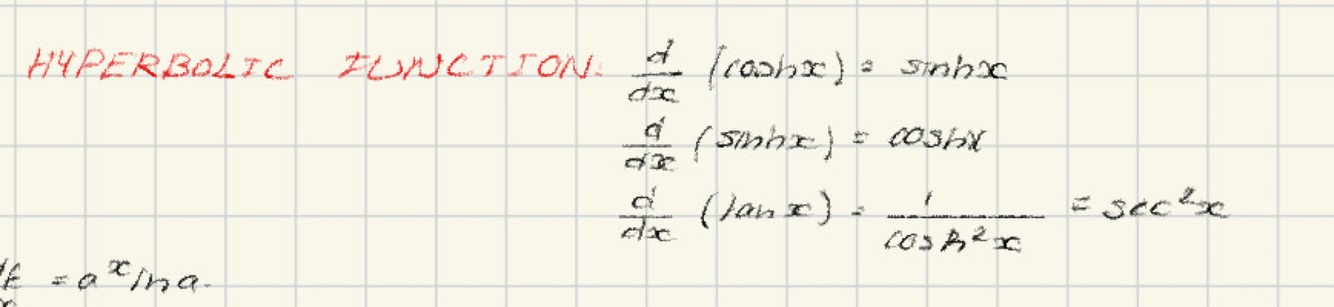 HYPERBOLIC FUNCTION: d/dx (coshx) = sinhx
d/dx (sinhx) = coshx
d/dx (tan x) = 1/cosh²x = sec²x
= a^x ln a.